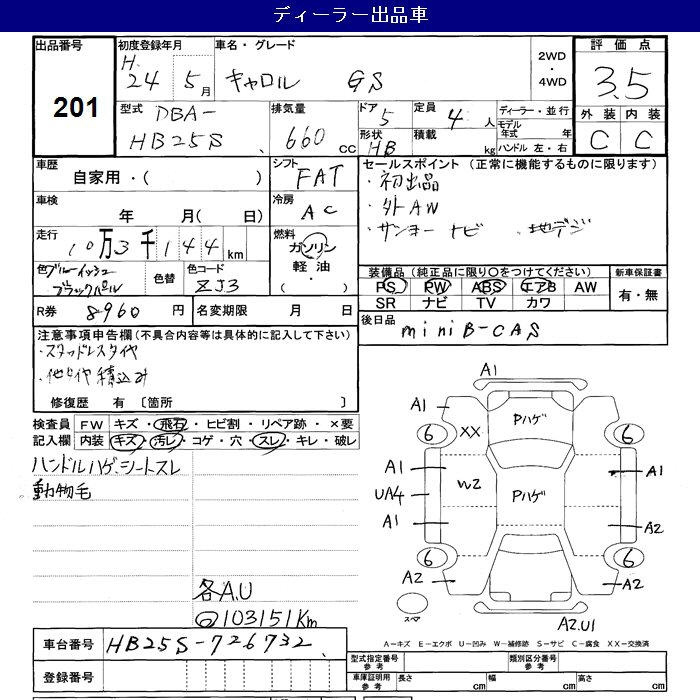 ディーラー出品車
出品番号
201
初度登録年月
H.
24 5月
車名・グレード
キャロル GS
2WD
・
4WD
評価点
3.5
外装 内装
C C
型式
DBA-
HB25S
排気量
660 cc
ドア
5
形状
HB
定員
4 人
積載
kg
ディーラー・並行
モデル年式 年
ハンドル 左・右
車歴
自家用・( )
シフト
FAT
車検
年 月( 日)
冷房
AC
走行
10万3千144km
燃料
ガソリン
軽油・
( )
色
ブルーイッシュ
ブラックパール
色替
色コード
ZJ3
R券 8960円
名変期限 月 日
セールスポイント(正常に機能するものに限ります)
・初出品
・外AW
・サンヨーナビ ・地デジ
装備品(純正品に限り○をつけてください)
PS PW ABS エアB AW
SR ナビ TV カワ
新車保証書
有・無
後日品
miniB-CAS
注意事項申告欄(不具合内容等は具体的に記入して下さい)
・スタッドレスタイヤ
・他タイヤ積込み
修復歴 有 〔箇所 〕
検査員記入欄
FW キズ・飛石・ヒビ割・リペア跡・×要
内装 キズ・汚レ・コゲ・穴・スレ・キレ・破レ
ハンドルハゲ、シートスレ
動物毛
各A.U
103151Km
車台番号 HB25S-726732
登録番号
A1
A1
Pハゲ
6 XX 6
A1 A1
W2 Pハゲ
UA4
A1 A2
6 6
A2 A2
スペア
A2.U1
A-キズ E-エクボ U-凹み W-補修跡 S-サビ C-腐食 XX-交換済
型式指定番号
参考
類別区分番号
参考
車庫証明用
参考
長さ cm 幅 cm 高さ cm